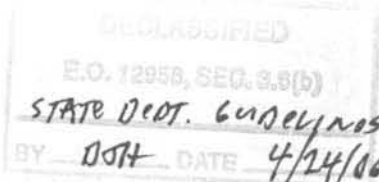 DECLASSIFIED
E.O. 12958, SEC. 3.6(b)
STATE DEPT. GUIDELINES
BY DJH DATE 4/24/06